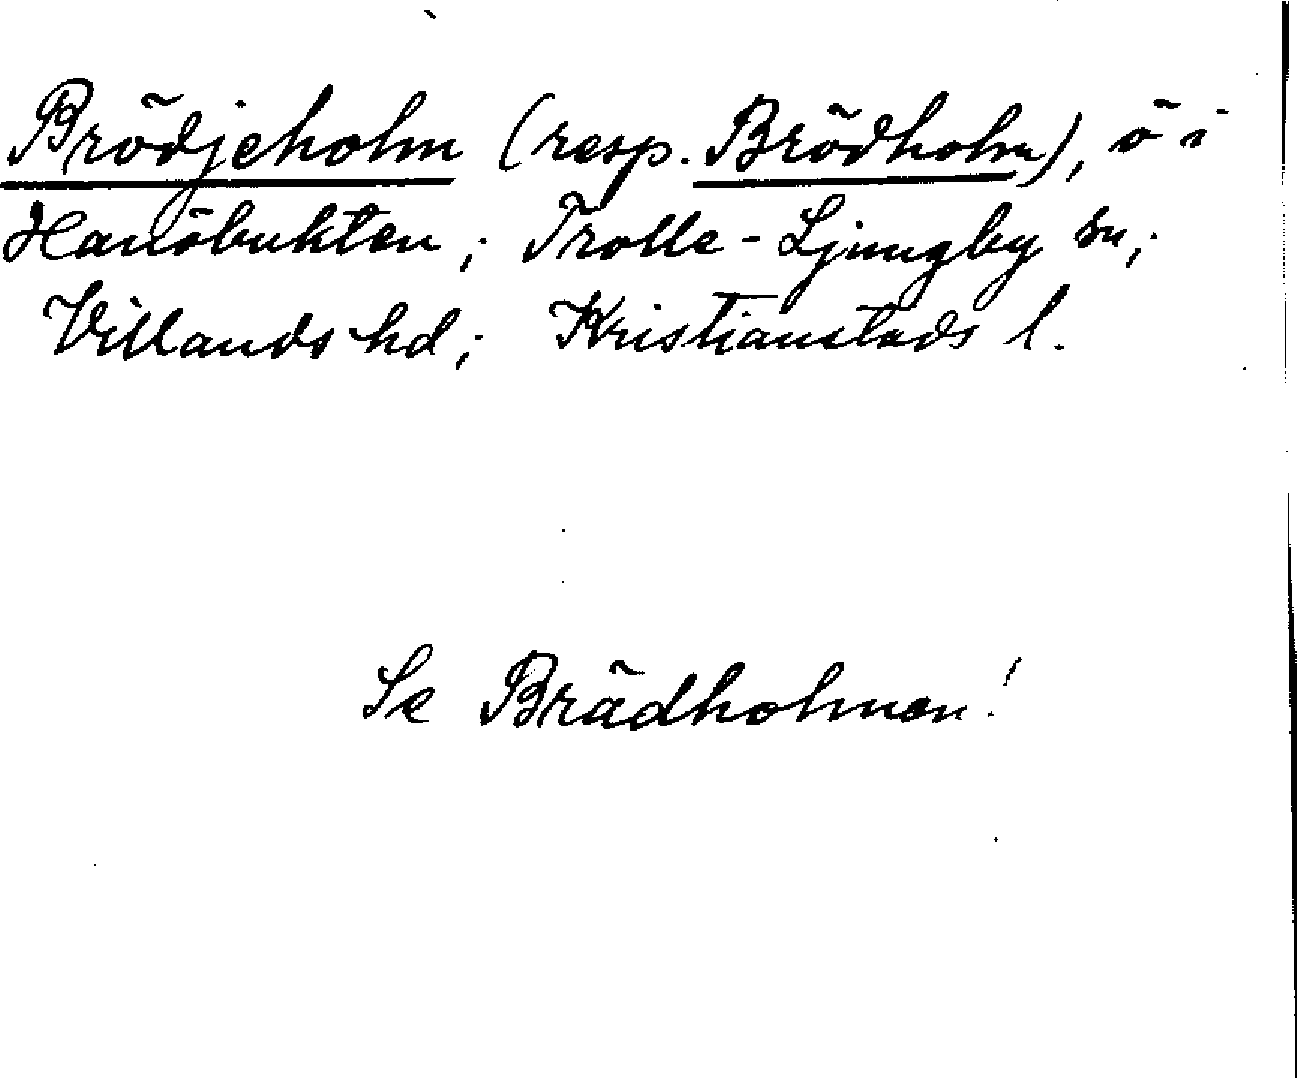 Brödjeholm (resp. Brödholm), ö i
Hanöbukten; Trolle-Ljungby sn;
Villands hd; Kristianstads l.
Se Brädholmen!